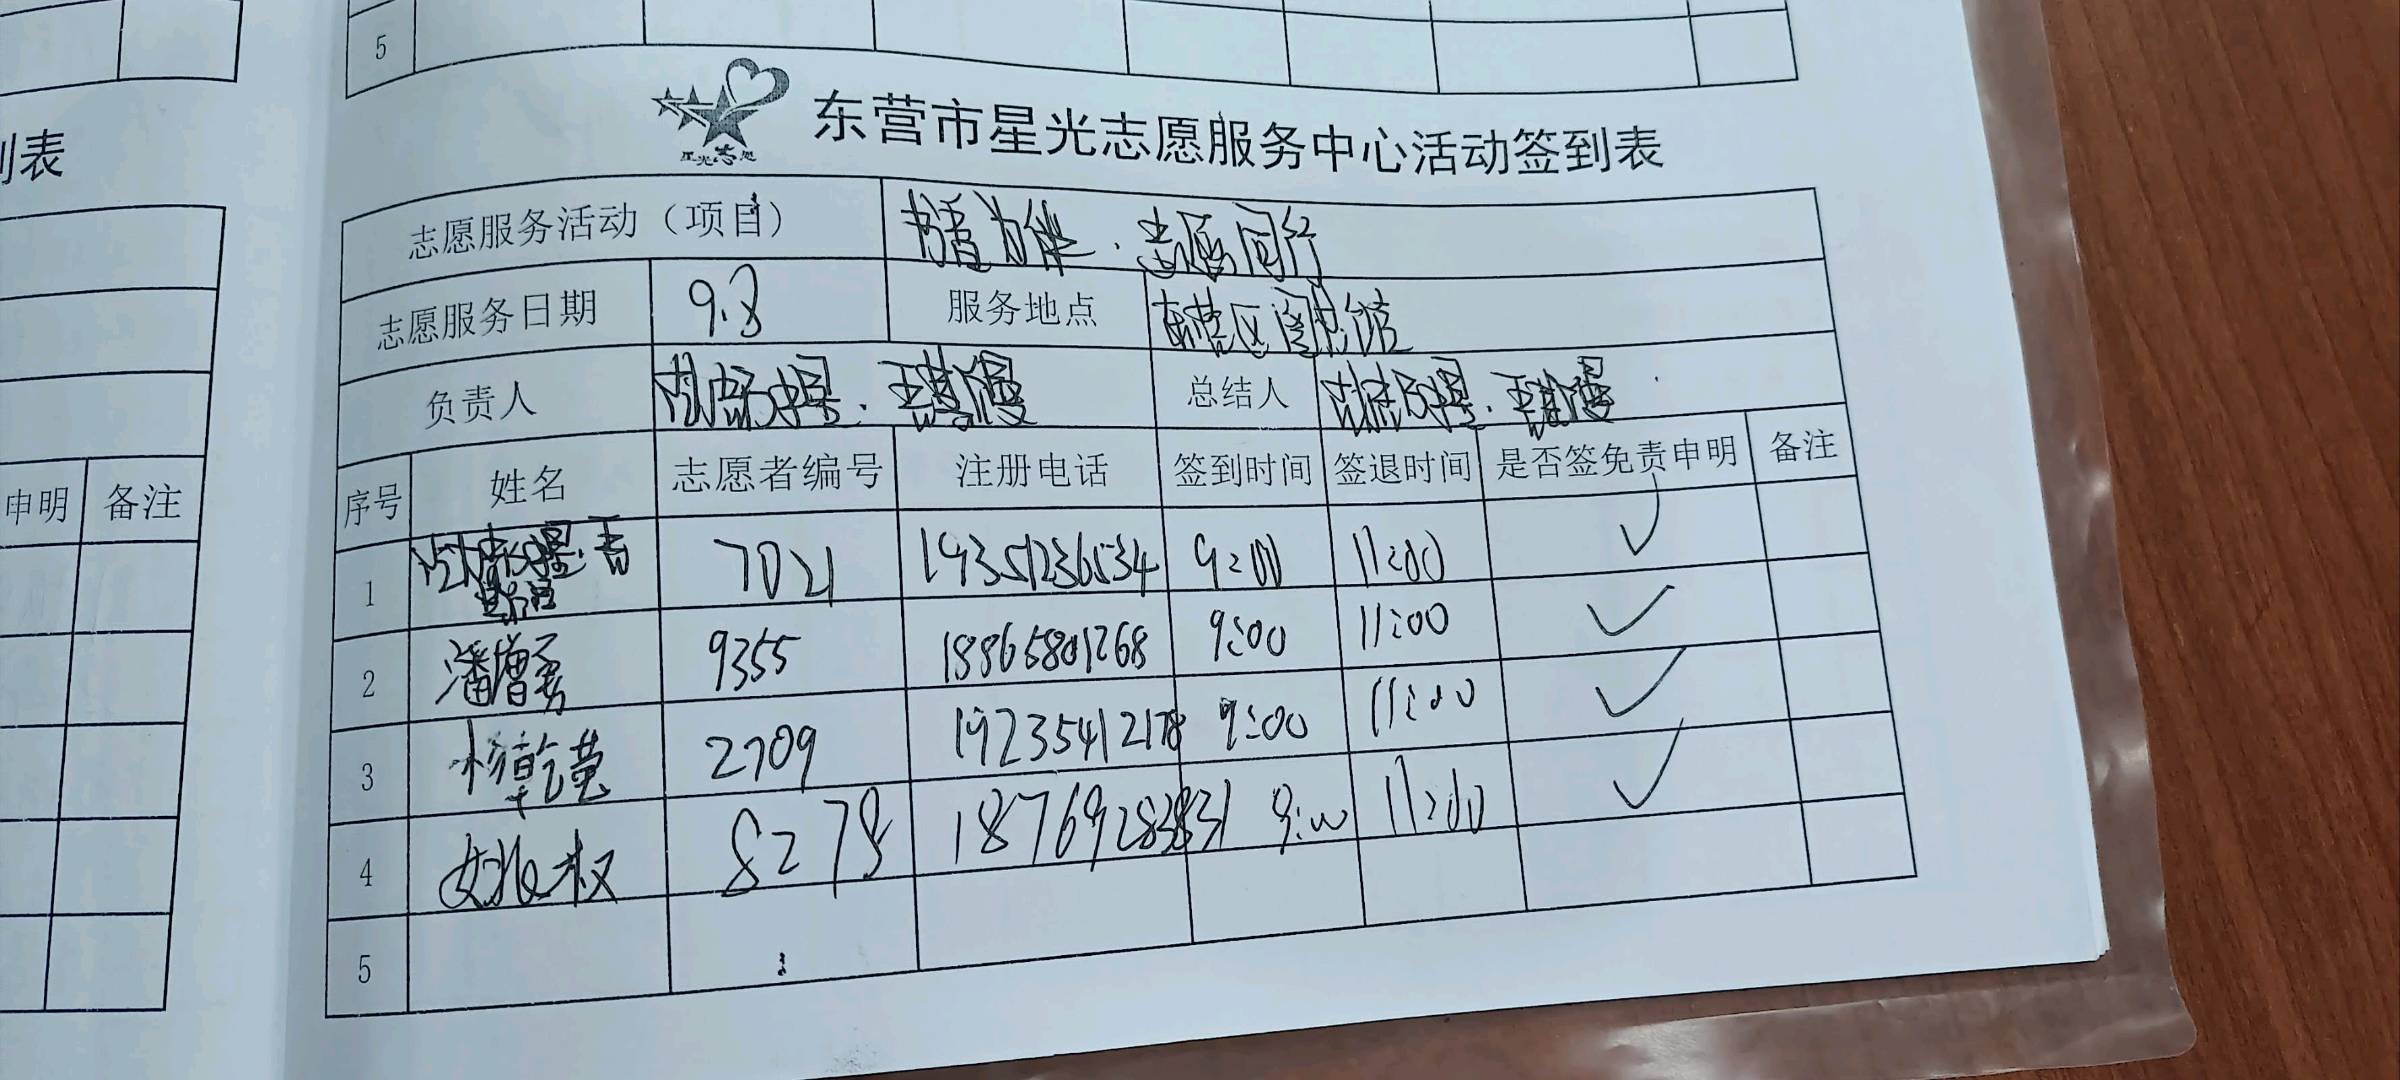 5
到表
星光志愿
东营市星光志愿服务中心活动签到表
志愿服务活动（项目） 书香为伴．志愿同行
志愿服务日期 9.8 服务地点 东营区图书馆
负责人 总结人
申明 备注
序号 姓名 志愿者编号 注册电话 签到时间 签退时间 是否签免责申明 备注
1 7021 19351236534 9:00 11:00 ✓
2 潘增勇 9355 18865801268 9:00 11:00 ✓
3 杨乾莹 2709 19235412178 9:00 11:00 ✓
4 权 8278 18769283831 9:00 11:00 ✓
5